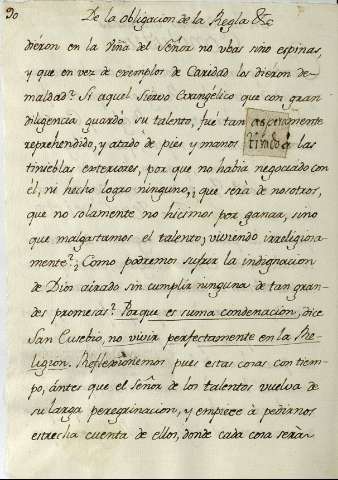 90 De la obligacion de la Regla &c
dieron en la viña del Señor no ubas sino espinas,
y que en vez de exemplos de Caridad los dieron de-
maldad? Si aquel Siervo evangélico que con gran
diligencia guardó su talento, fué tan asperamente
reprehendido, y atado de pies y manos à las
tinieblas exteriores, por que no habia negociado con
él, ni hecho logro ninguno, ¿que será de nosotros,
que no solamente no hicimos por ganar, sino
que malgastamos el talento, viviendo irreligiosa-
mente? ¿Como podremos sufrir la indignacion
de Dios airado sin cumplir ninguna de tan gran-
des promesas? Porque es suma condenacion, dice
San Eusebio, no vivir perfectamente en la Re-
ligion. Reflexionemos pues estas cosas con tiem-
po, ántes que el Señor de los talentos vuelva de
su larga peregrinacion, y empiece à pedirnos
estrecha cuenta de ellos, donde cada cosa será